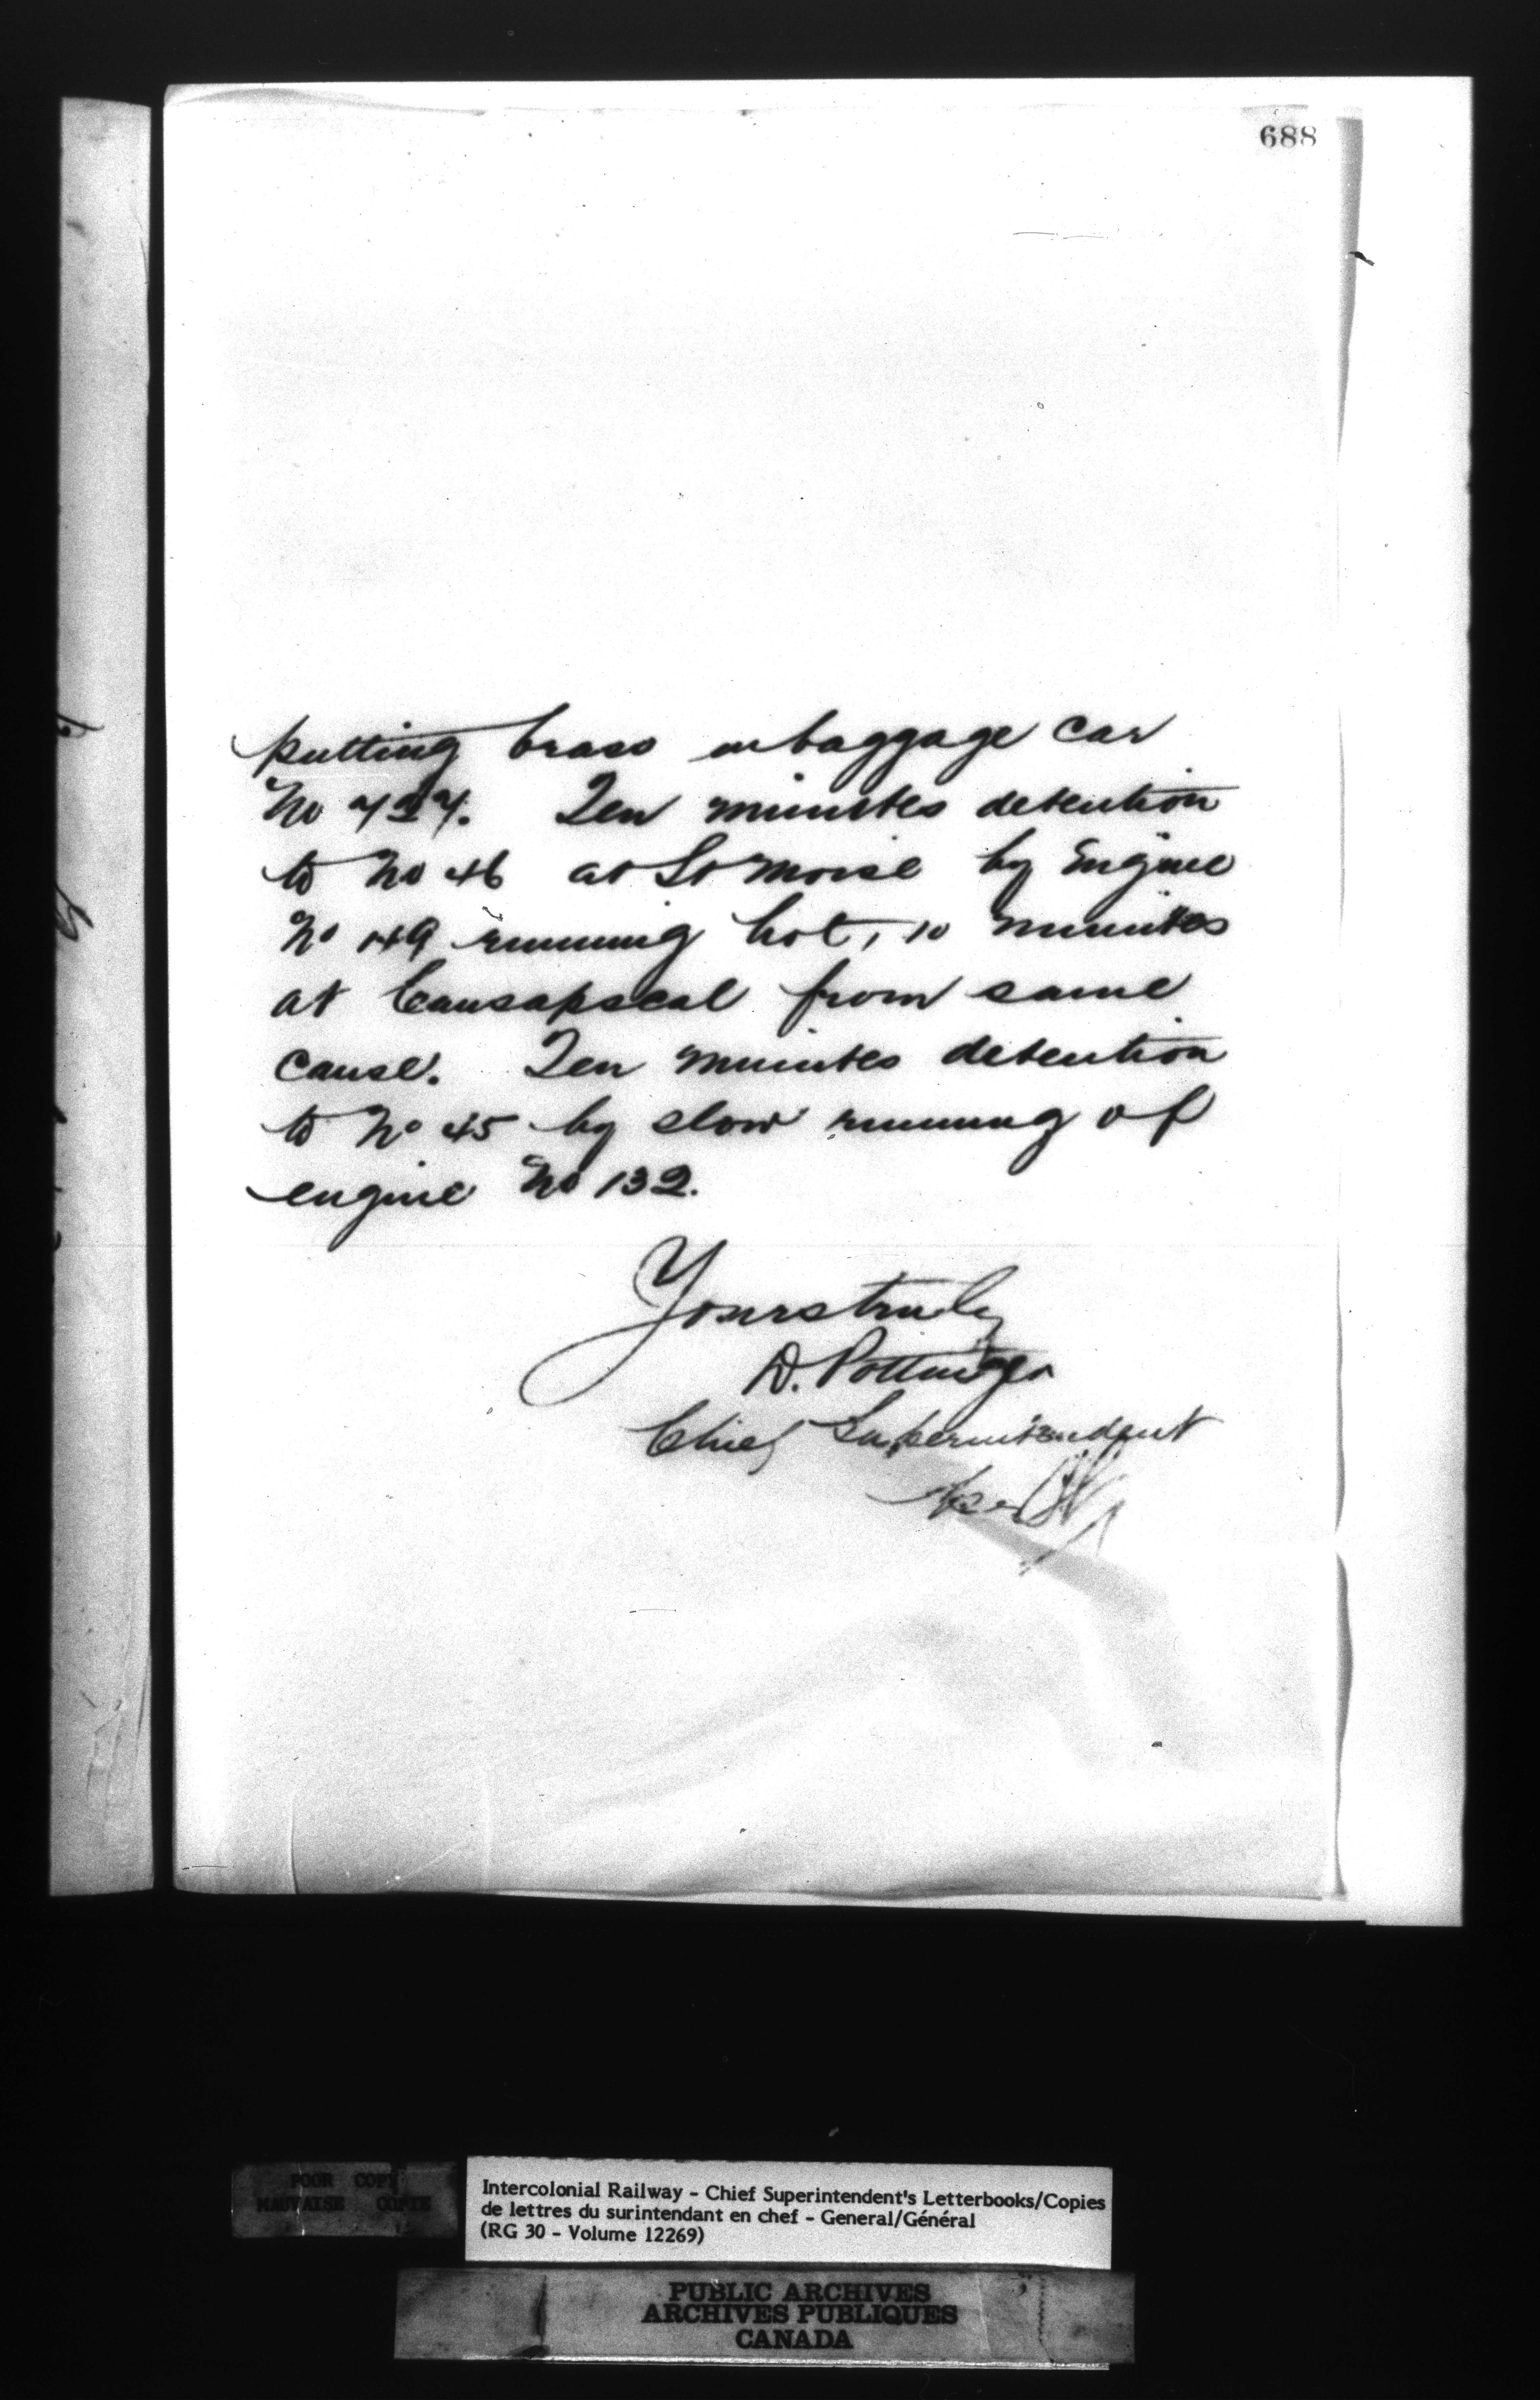 688
putting brass in baggage car
No 427. Ten minutes detention
to No 46 at St Moise by Engine
No 149 running hot, 10 minutes
at Causapscal from same
cause. Ten minutes detention
to No 45 by slow running of
engine No 132.
Yours truly
D. Pottinger
Chief Superintendent
per
POOR COPY
MAUVAISE COPIE
Intercolonial Railway - Chief Superintendent's Letterbooks/Copies
de lettres du surintendant en chef - General/Général
(RG 30 - Volume 12269)
PUBLIC ARCHIVES
ARCHIVES PUBLIQUES
CANADA